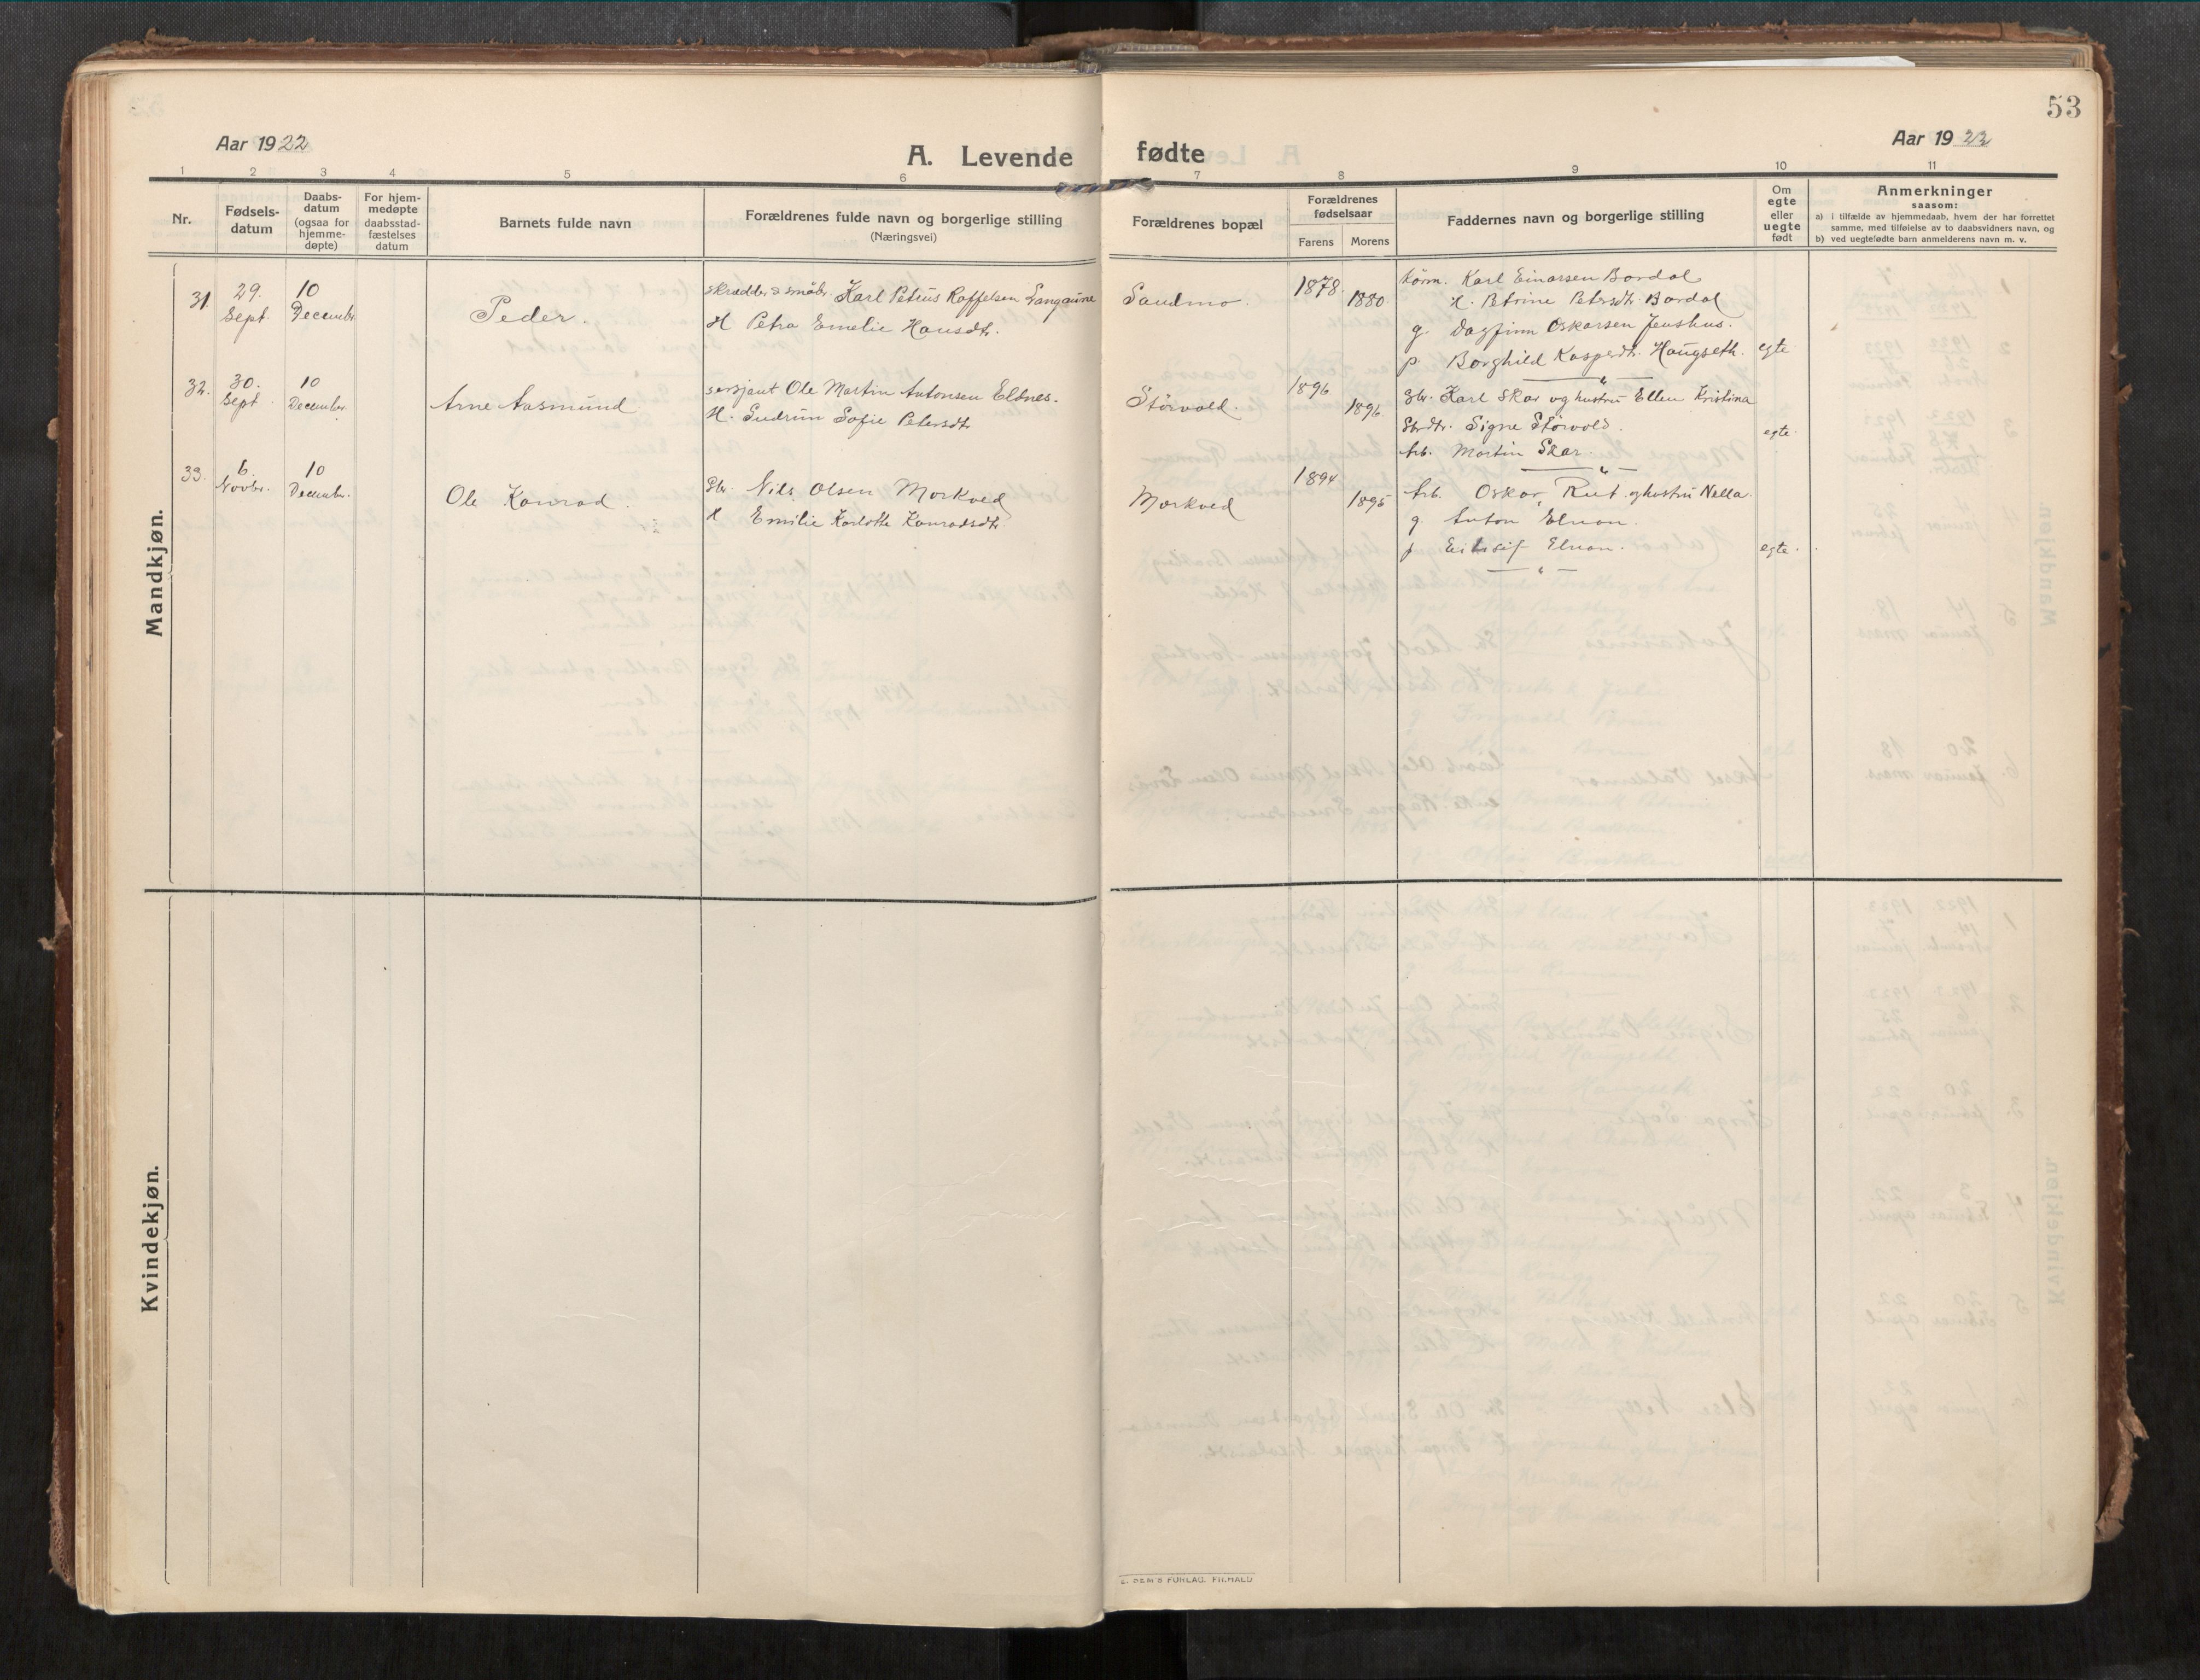 53
Aar 1922
A. Levende fødte
Aar 1922
1 2 3 4 5 6 7 8 9 10 11
Nr.
Fødsels-
datum
Daabs-
datum
(ogsaa for
hjemme-
døpte)
For hjem-
medøpte
daabsstad-
fæstelses
datum
Barnets fulde navn
Forældrenes fulde navn og borgerlige stilling
(Næringsvei)
Forældrenes bopæl
Forældrenes
fødselsaar
Farens
Morens
Faddernes navn og borgerlige stilling
Om
egte
eller
uegte
født
Anmerkninger
saasom:
a) i tilfælde av hjemmedaab, hvem der har forrettet
samme, med tilføielse av to daabsvidners navn, og
b) ved uegtefødte barn anmelderens navn m. v.
Mandkjøn.
31
29.
Sept.
10
Decembr.
Peder.
skrædder & småbr. Karl Petrus Raffelsen Langaune
H Petra Emelie Hansdtr.
Sandmo.
1878.
1880.
Karl Einarsen Bardal
H. Petrine Petersdtr. Bardal
g. Dagfinn Oskarsen Jenshus.
p Borghild Kaspersdtr. Haugseth.
egte
32.
30.
Sept.
10
December.
Arne Aasmund
sersjant Ole Martin Antonsen Eldnes.
H. Gudrun Sofie Petersdtr
Størvold.
1896
1896.
Gbr. Karl Skar og hustru Ellen Kristina
Gbrdtr. Signe Størvold.
Arb. Martin Skar.
egte.
33.
6.
Novbr.
10
Decembr.
Ole Konrad.
Gbr. Nils Olsen Morkved
H Emilie Karlotte Konradsdtr.
Morkved
1894
1895
Arb. Oskar Rut og hustru Nella.
g. Anton Elnan.
p Eilisif Elnan.
egte.
Kvindekjøn.